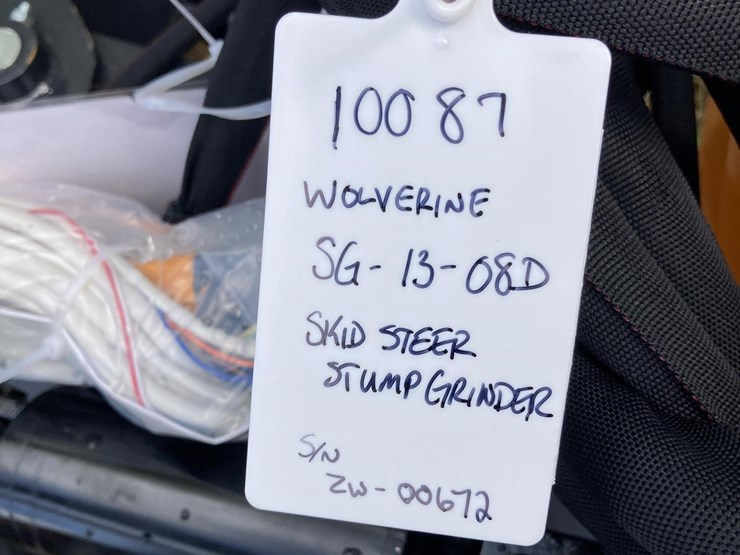 10087
WOLVERINE
SG-13-08D
SKID STEER
STUMP GRINDER
S/N
ZW-00672